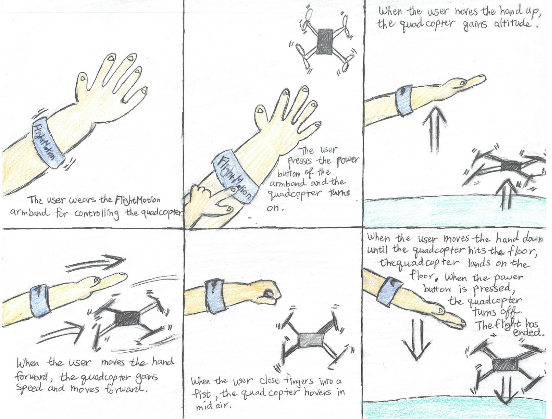 FlightMotion
The user wears the FlightMotion
armband for controlling the quadcopter
FlyingMotion
The user
presses the power
button of the
armband and the
quadcopter turns
on.
When the user moves the hand up,
the quadcopter gains altitude.
When the user moves the hand
forward, the quadcopter gains
speed and moves forward.
When the user close fingers into a
fist, the quadcopter hovers in
mid air.
When the user moves the hand down
until the quadcopter hits the floor,
the quadcopter lands on the
floor. When the power
button is pressed,
the quadcopter
turns off.
The flight has
ended.